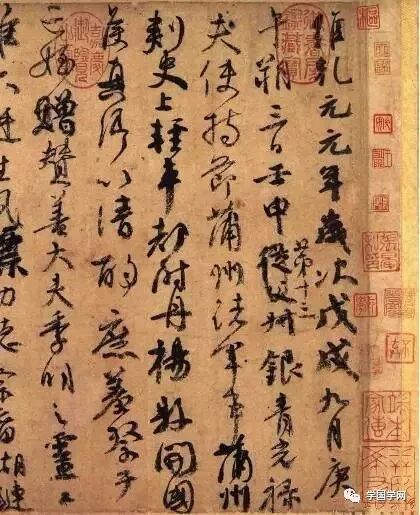 維乾元元年歲次戊戌九月庚
午朔三日壬申第十三從父叔銀青光祿
夫使持節蒲州諸軍事蒲州
刺史上輕車都尉丹楊縣開國
侯真卿以清酌庶羞祭于
亡姪贈贊善大夫季明之靈曰
惟爾挺生夙標幼德宗廟瑚璉
学国学网